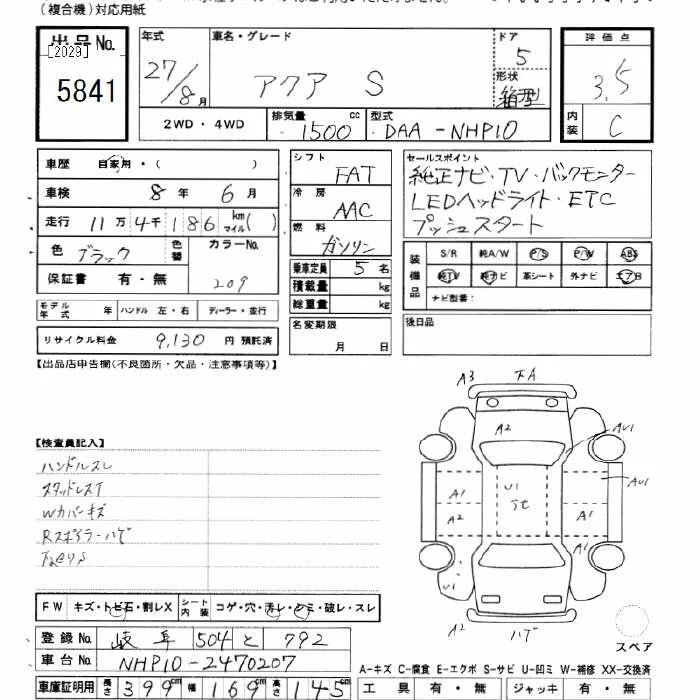 (複合機)対応用紙
出品No.
[2029]
5841
年式
27/8月
車名・グレード
アクア S
ドア
5
形状
箱型
評価点
3.5
内装
C
2WD・4WD
排気量
1500 cc
型式
DAA-NHP10
車歴 自家用・( )
車検 8年 6月
走行 11万 4千 186 km マイル( )
色 ブラック 色替
カラーNo.
209
保証書 有・無
シフト
FAT
冷房
AAC
燃料
ガソリン
乗車定員 5名
積載量 kg
総重量 kg
セールスポイント
純正ナビ・TV・バックモニター
LEDヘッドライト・ETC
プッシュスタート
装備品
S/R 純A/W P/S P/W ABS
純TV 純ナビ 革シート 外ナビ エアB
ナビ型番:
モデル年式 年 ハンドル 左・右 ディーラー・並行
名変期限
月 日
後日品
リサイクル料金 9,130 円 預託済
【出品店申告欄(不良箇所・欠品・注意事項等)】
A3
A2
AU1
AU1
U1
A1
A1
A2
A1
A2
【検査員記入】
ハンドルスレ
スタッドレスT
Wカバーキズ
Rスポイラーハゲ
下廻りS
ハゲ
スペア
FW キズ・トビ石・割レX
シート内装 コゲ・穴・汚レ・シミ・破レ・スレ
登録No. 岐阜 504 と 792
車台No. NHP10-2470207
車庫証明用 長さ 399cm 幅 169cm 高さ 145cm
A-キズ C-腐食 E-エクボ S-サビ U-凹ミ W-補修 XX-交換済
工具 有・無 ジャッキ 有・無